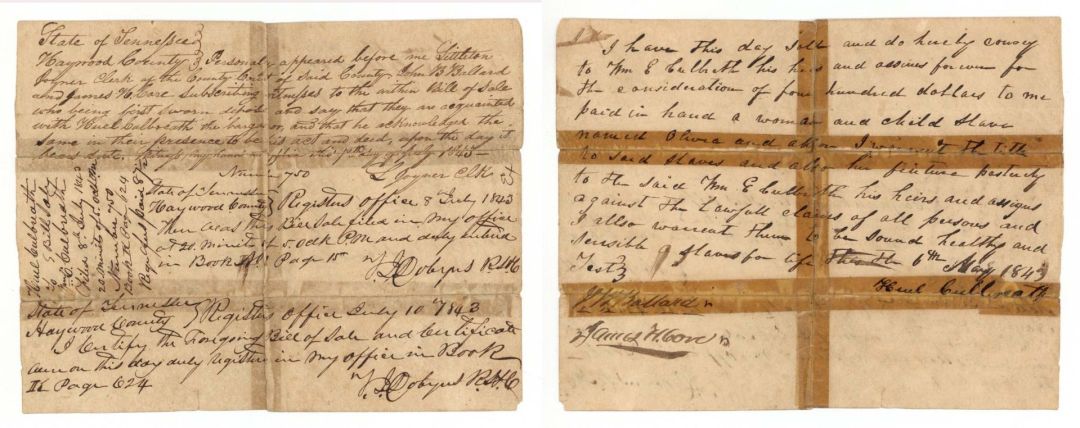 State of Tennessee
Haywood County Personally appeared before me Littleton
Joyner Clerk of the County Court of Said County John B Ballard
and James H Core Subscribing witnesses to the within Bill of Sale
who being first sworn depose and say that they are acquainted
with Hirel Culbreath the bargainor, and that he acknowledged the
same in their presence to be his act and deed, upon the day it
bears date, Witness my hand at office this 7th day of July 1843
Number 750 L Joyner Clk
State of Tennessee
Haywood County Registers office 8 July 1843
Then was this Bill Sale filed in my office
at 20 minutes of 5. oclk PM and duly entered
in Book Page 15
T. J. Dobyns R.H.C
Hirel Culbreath
To Bill Sale
Wm E Culbreath
Filed 8th July 1843
20 minutes of 5. oclk PM
Number 750
Book H Page 624
State of Tennessee
Haywood County Registers Office July 10th 1843
I Certify the foregoing Bill of Sale and Certificate
are on this day duly registered in my office in Book
H Page 624
T. J. Dobyns R.H.C
I have this day sold and do hereby convey
to Wm E Culbreth his heirs and assigns forever for
the consideration of four hundred dollars to me
paid in hand a woman and child slave
named Olivia and I warrant the title
to said slaves and also her future posterity
to the said Wm E Culbreth his heirs and assigns
against the Lawfull claims of all persons and
I also warrent them to be sound healthy and
sensible & slaves for life this the 6th May 1843
Test Hirel Culbreath
J B Ballard
James H Core